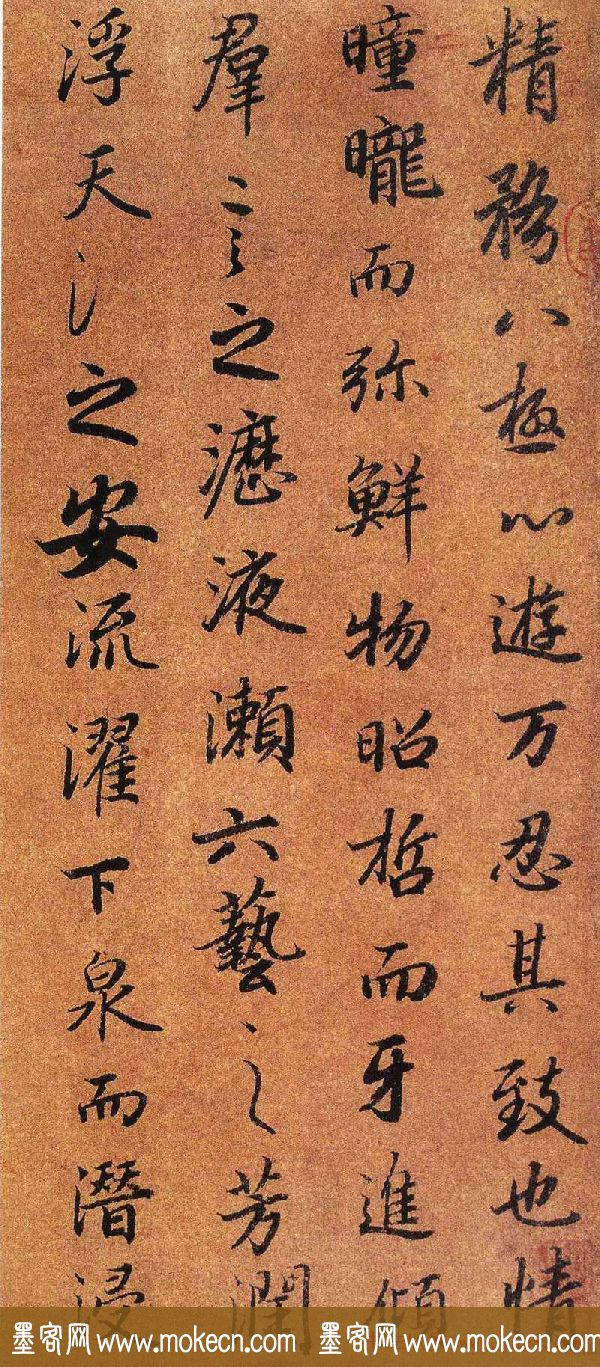 精務八極心遊万忍其致也情
曈曨而弥鮮物昭哲而牙進傾
羣言之瀝液瀨六藝之芳潤
浮天氵之安流濯下泉而潛浸
墨客网 www.mokecn.com 墨客网 www.mokecn.com